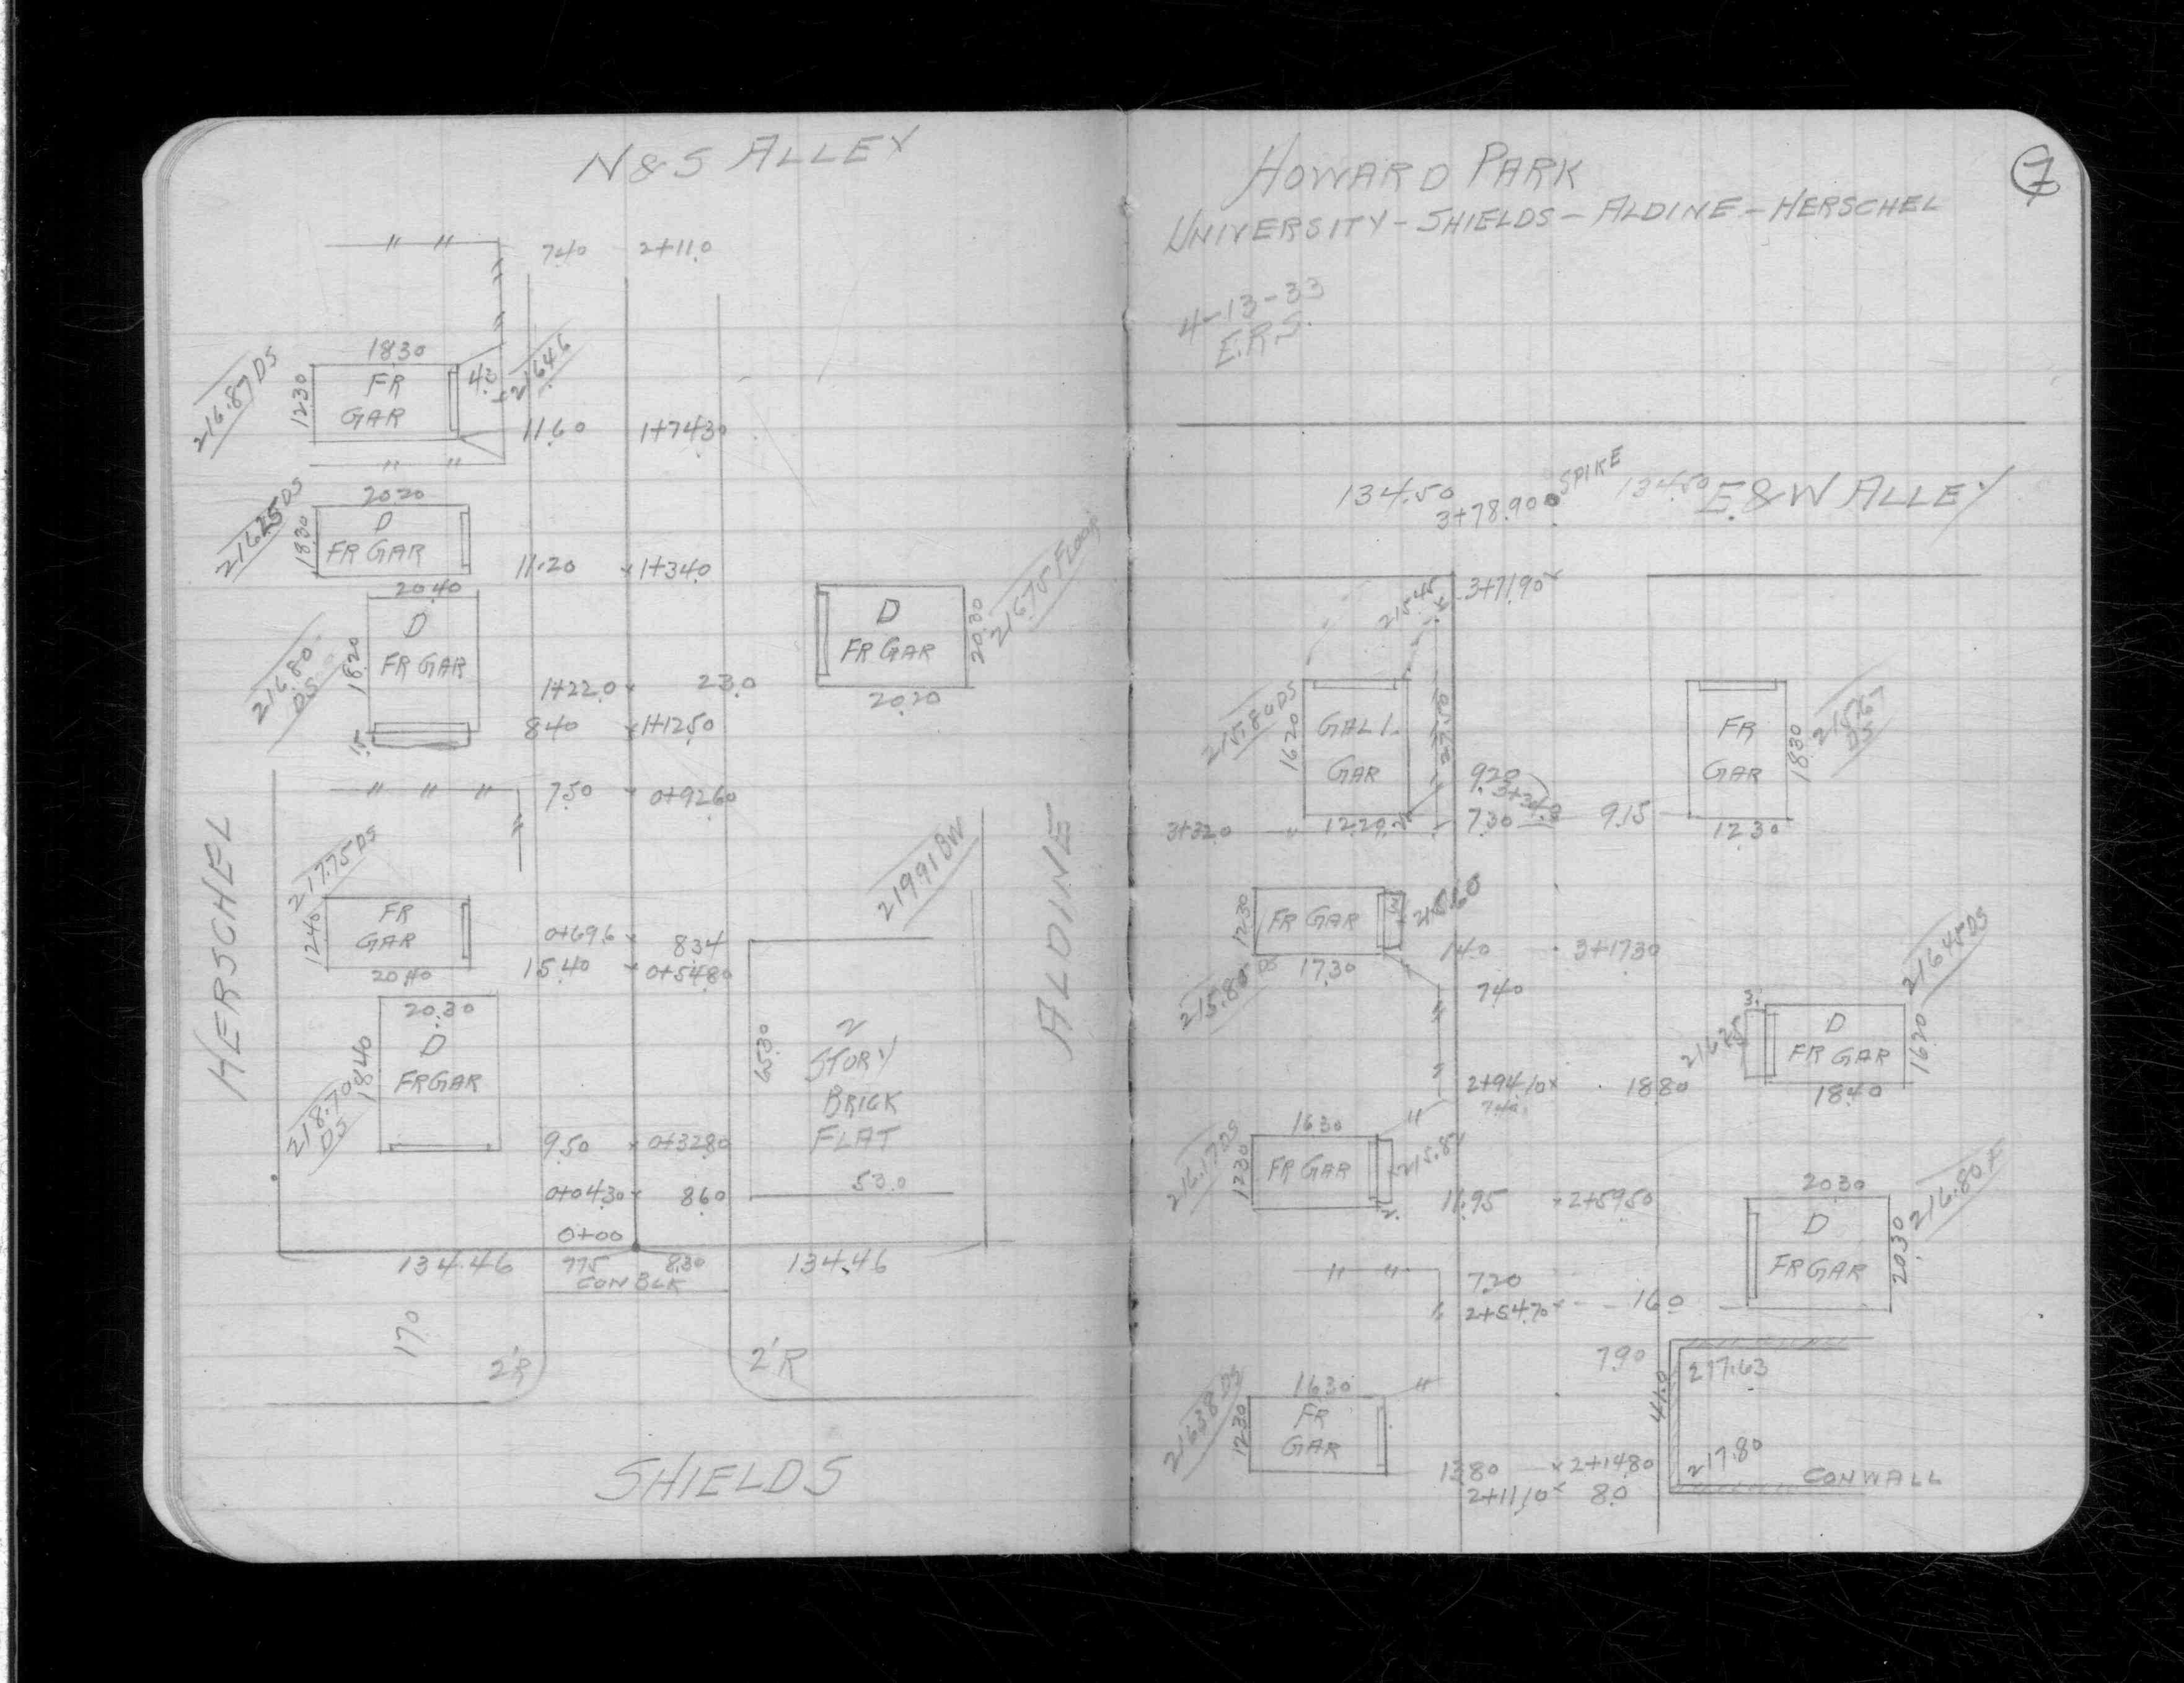 N & S ALLEY
740 2+11.0
1830
216.87 DS
1230
FR
GAR
4.3
216.46
11.60 1+74.30
20.20
216.25 DS
18.30
D
FR GAR
11.20 1+34.0
20.40
D
FR GAR
18.20
216.80
DS
1.5
1+22.0 23.0
8.40 1+12.50
D
FR GAR
20.30
20.20
216.75 FLOOR
7.50 0+92.60
HERSCHEL
217.75 DS
12.40
FR
GAR
20.40
0+69.6 8.34
15.40 0+54.80
219.91 BW
ALDINE
20.30
D
FR GAR
18.40
218.70
DS
65.30
2
STORY
BRICK
FLAT
53.0
9.50 0+32.80
0+04.30 8.60
0+00
134.46 7.75 8.30 134.46
CON BLK
17.0
2'R 2'R
SHIELDS
7
HOWARD PARK
UNIVERSITY - SHIELDS - ALDINE - HERSCHEL
4-13-33
E.R.S.
134.50 SPIKE 134.50
3+78.90
E. & W ALLEY
3+71.90
215.45
215.80 DS
16.20
GAL I.
GAR
27.50
12.20
9.20
3+34.0
3+32.0 7.30 9.15
FR
GAR
18.30
12.30
215.67
DS
12.30
FR GAR
17.30
215.80 DS
1.40 3+17.30
7.40
216.45 DS
3.
216.25
D
FR GAR
16.20
18.40
2+94.10 18.80
7.40
16.30
216.17 DS
12.30
FR GAR
215.87
2.
11.95 2+59.50
20.30
D
FR GAR
20.30
216.80 F
7.20
2+54.70 16.0
7.90
41.0
217.63
217.80
CON WALL
216.38 DS
16.30
12.30
FR
GAR
13.80 2+14.80
2+11.10 8.0